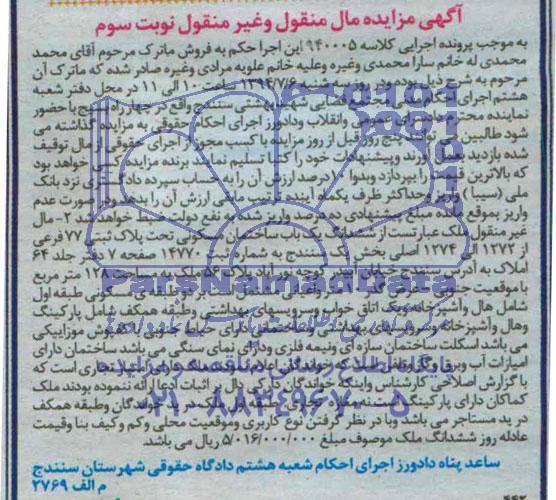 آگهی مزایده مال منقول وغیر منقول نوبت سوم
به موجب پرونده اجرایی کلاسه ۹۴۰۰۰۵ این اجرا حکم به فروش ماترک مرحوم آقای محمد
محمدی له خانم سارا محمدی وغیره وعلیه خانم علویه مرادی وغیره صادر شده که ماترک آن
مرحوم به شرح ذیل بوده ودر روز سه شنبه ۱۳۹۴/۷/۶ ساعت ۱۰ الی ۱۱ در محل دفتر شعبه
هشتم اجرای احکام مدنی مجتمع قضایی شهید بهشتی سنندج واقع در چهار راه بسیج باحضور
نماینده محترم دادسرای عمومی وانقلاب ودادورز اجرای احکام حقوقی به مزایده گذاشته می
شود طالبین می توانند پنج روز قبل از روز مزایده با کسب مجوز از اجرای حقوقی از مال توقیف
شده بازدید بعمل آورند وپیشنهادات خود را کتبا تسلیم نمایند برنده مزایده کسی خواهد بود
که بالاترین قیمت را بپردازد وبدوا ۱۰ درصد ارزش آن را به حساب سپرده دادگستری نزد بانک
ملی (سیبا) واریز وحداکثر ظرف یکماه آینده ترتیب مابقی ارزش آن را بدهد ودر صورت عدم
واریز بموقع مانده مبلغ پیشنهادی ده درصد واریز شده به نفع دولت ضبط خواهد شد ۲- مال
غیر منقول ملک عبارتست از ششدانگ یک باب ساختمان مسکونی تحت پلاک ثبتی ۷۷ فرعی
از ۱۲۷۲ الی ۱۲۷۴ اصلی بخش یک سنندج به شماره ثبت ۱۴۷۷۰ صفحه ۷ دفتر جلد ۶۴
املاک به آدرس سنندج خیابان آبیدر کوچه نورآباد پلاک ۵۶ ملک به مساحت ۱۲۸ متر مربع
با موقعیت جنوبی
مشتمل است بر دو طبقه ی مسکونی طبقه اول
شامل هال وآشپزخانه ویک اتاق خواب وسرویسهای بهداشتی وطبقه همکف شامل پارکینگ
وهال وآشپزخانه وسرویسهای بهداشتی می باشد ساختمان دارای حیاط جنوبی با کفپوش موزاییکی
می باشد اسکلت ساختمان سازه ای ونیمه فلزی ودارای نمای سنگی می باشد ساختمان دارای
امتیازات آب وبرق وگاز
است که
با گزارش اصلاحی کارشناس واینکه خواندگان مدرکی دال بر اثبات ادعا ارائه ننموده بودند ملک
کماکان دارای پارکینگ
خواندگان وطبقه همکف
در ید مستاجر می باشد وبا در نظر گرفتن نوع کاربری وموقعیت محلی وکم وکیف بنا وقیمت
عادله روز ششدانگ ملک موصوف مبلغ ۵/۰۱۶/۰۰۰/۰۰۰ ریال می باشد.
ساعد پناه دادورز اجرای احکام شعبه هشتم دادگاه حقوقی شهرستان سنندج
م الف ۲۷۶۹
۴۴۲
ParsNamadData
پایگاه اطلاع رسانی مناقصه و مزایده
۰۲۱-۸۸۳۴۹۶۷۰-۵